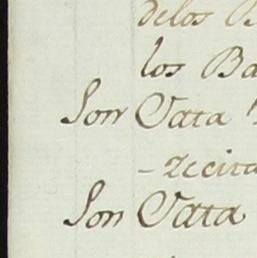 delos B
los Ba
Son Tata
- Recita
Son Tata